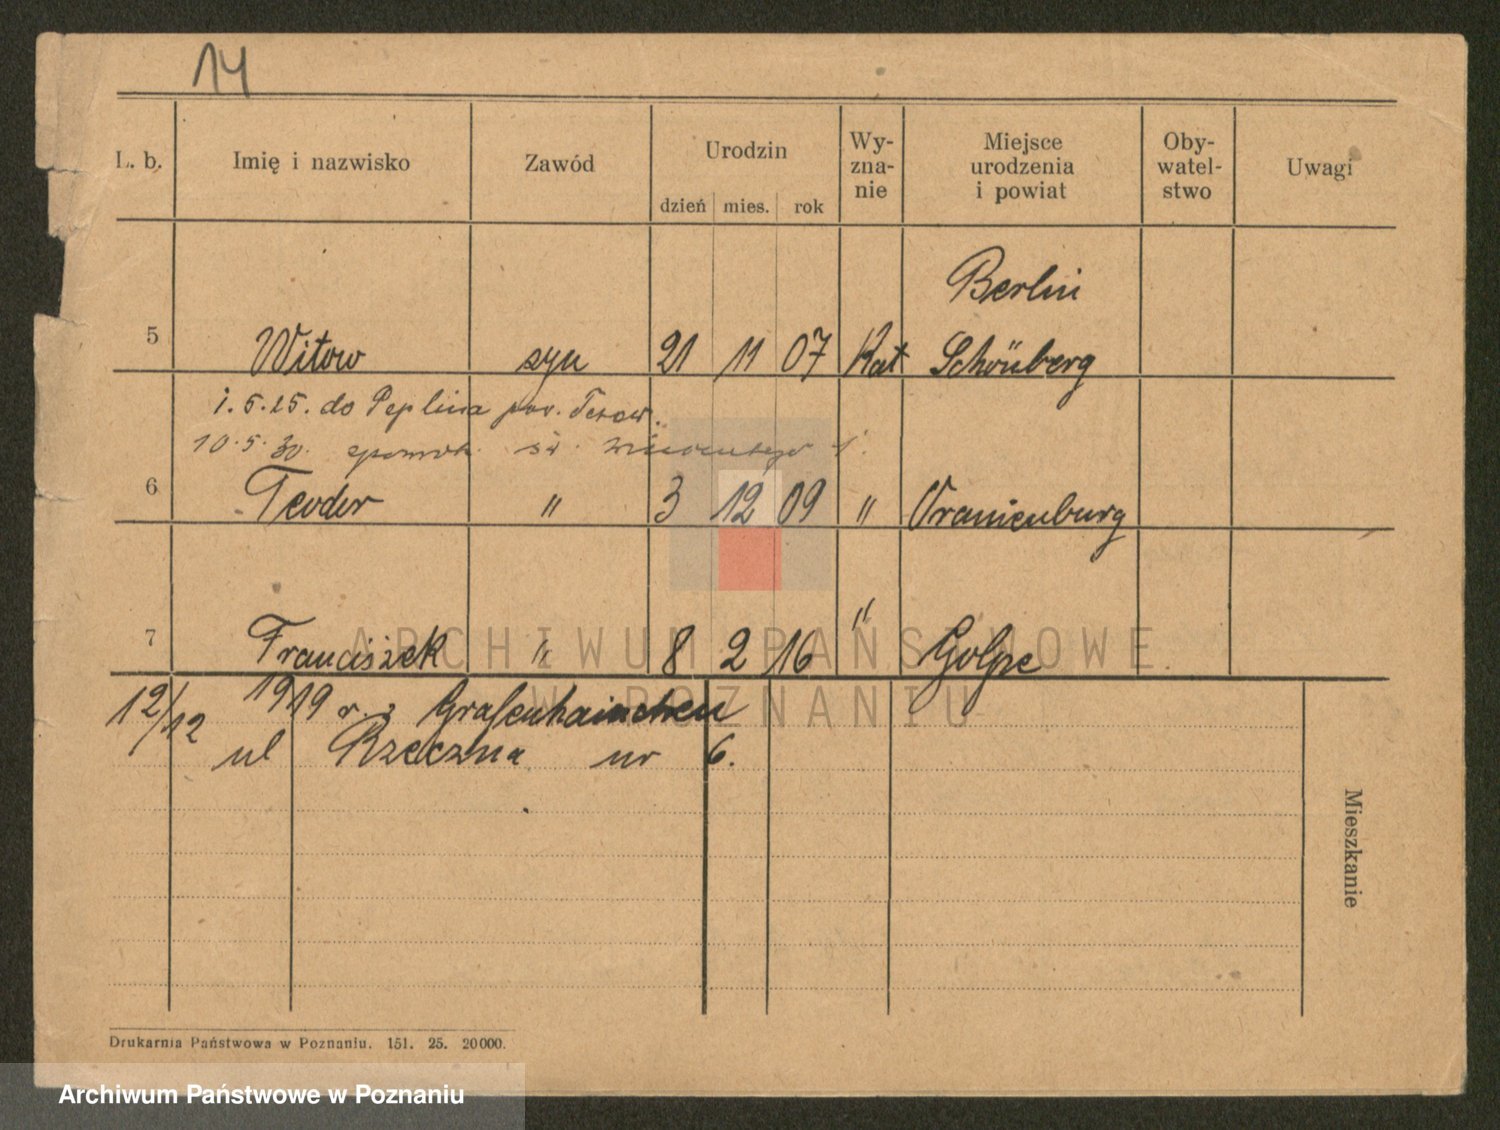 14
L. b. Imię i nazwisko Zawód Urodzin dzień mies. rok Wy-zna-nie Miejsce urodzenia i powiat Oby-watel-stwo Uwagi
Berlin
5 Witow syn 21 11 07 Kat Schönberg
1.5.25. do Peplina pow.
10.5.30. św.
6 Teodor " 3 12 09 " Oranienburg
7 Franciszek " 8 2 16 " Golpe
12/12 1919 r. z Grafenhainchen
ul Rzeczna nr 6.
Mieszkanie
Drukarnia Państwowa w Poznaniu. 151. 25. 20000.
ARCHIWUM PAŃSTWOWE
W POZNANIU
Archiwum Państwowe w Poznaniu